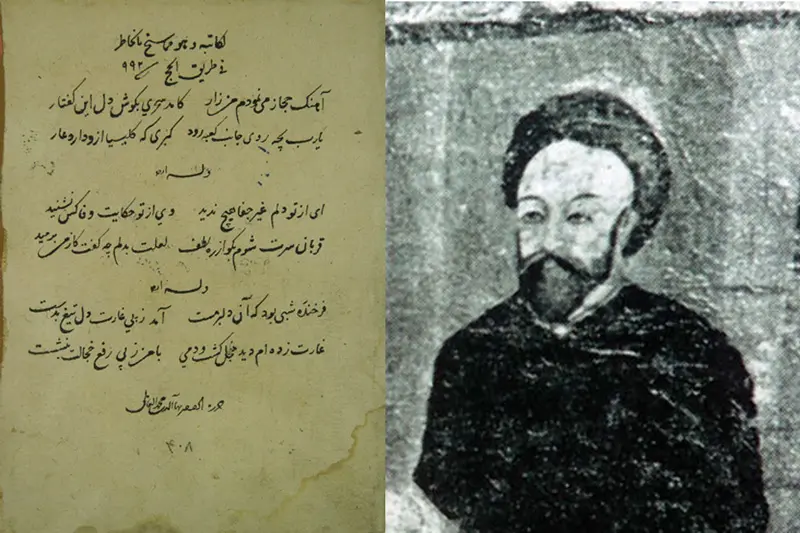 لکاتبه و هو مما سنح بالخاطر
فی طریق الحج سنه ۹۹۲
آهنگ حجاز می نمودم من زار کامد سحری بکوش دل این کفتار
یارب بچه روی جانب کعبه رود کبری که کلیسیا ازو دارد عار
وله ایضا
ای از تو دلم غیر جفا هیچ ندید وی از تو حکایت وفا کس نشنید
قربان سرت شوم بکو از ره لطف لعلت بدلم چه کفت کز من برمید
وله ایضا
فرخنده شبی بود که آن دلبر مست آمد ز پی غارت دل تیغ بدست
غارت زده ام دید خجل کشت و دمی با من ز پی رفع خجالت بنشست
حرره بهاء الدین محمد العاملی
۴۰۸